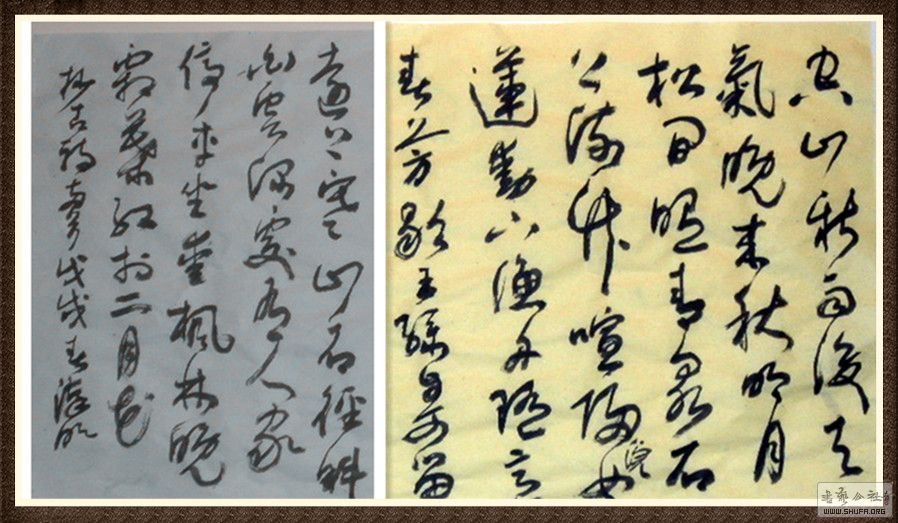 空山新雨後天
氣晚来秋明月
松间照清泉石
上流竹喧歸浣女
蓮動下漁舟随意
春芳歇王孫自可留
遠上寒山石徑斜
白雲深處有人家
停車坐愛楓林晚
霜葉紅於二月花
抄古詩壹首戊戌春
書藝公社
WWW.SHUFA.ORG